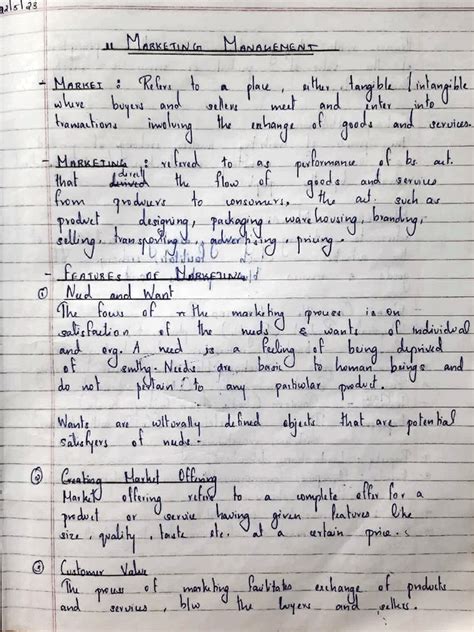 12/5/23
" MARKETING MANAGEMENT
- MARKET : Refers to a place, either tangible / intangible
where buyers and sellers meet and enter into
transactions involving the exchange of goods and services.
- MARKETING : refered to as performance of bs act.
that direct the flow of goods and services
from producers to consumers, the act. such as
product designing, packaging, warehousing, branding,
selling, transporting, advertising, pricing.
- FEATURES OF MARKETING
① Need and Want
The focus of the marketing process is on
satisfaction of the needs & wants of individual
and org. A need is a feeling of being deprived
of smthg. Needs are basic to human beings and
do not pertain to any particular product.
Wants are culturally defined objects that are potential
satisfyers of needs.
② Creating Market Offering
Market offering refer to a complete offer for a
product or service having given features like
size, quality, taste etc. at a certain price.
③ Customer Value
The process of marketing facilitates exchange of products
and services, b/w the buyers and sellers.